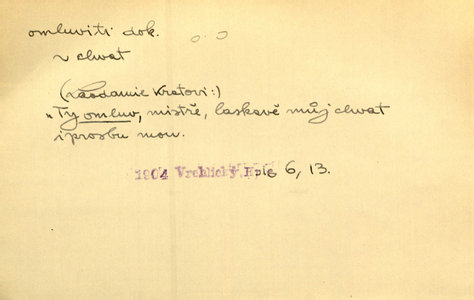 omluviti dok.
v chvat
(Laodamie Kratovi:)
„Ty omluv, mistře, laskavě můj chvat
i prosbu mou.
1904 Vrchlický Epig 6, 13.